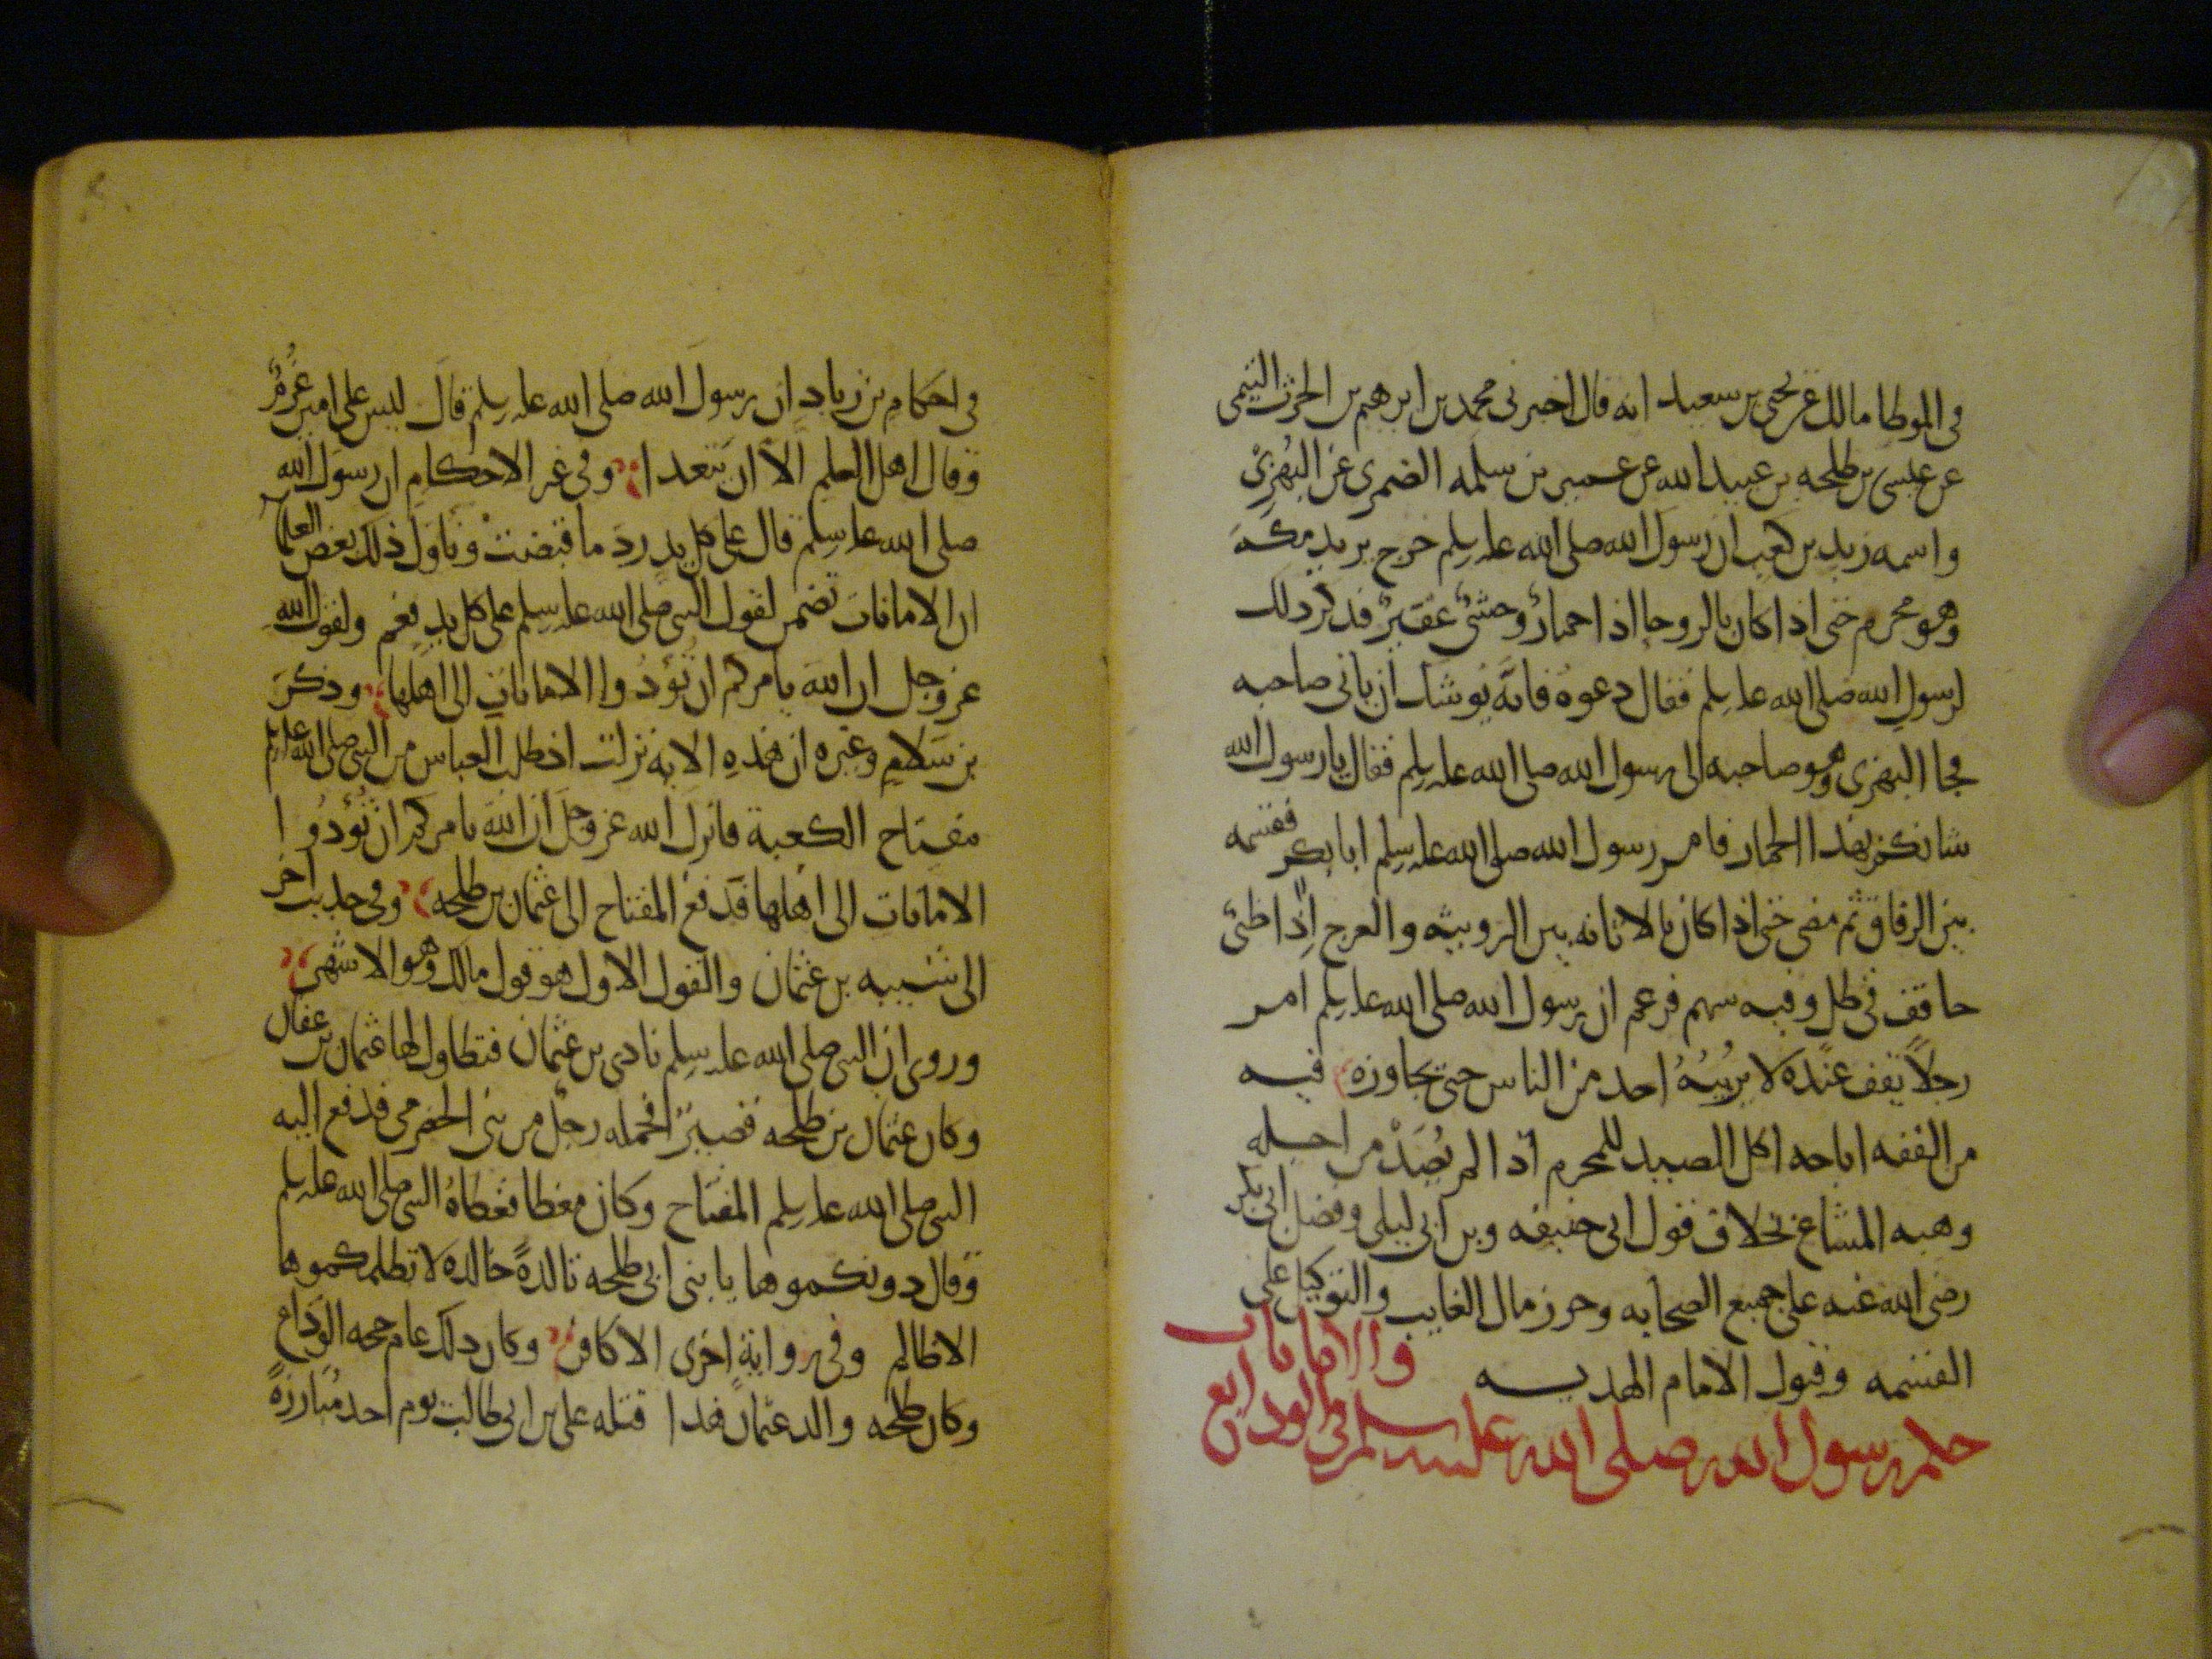 في الموطا مالك عن يحيى بن سعيد انه قال اخبرني محمد بن ابرهيم بن الحرث التيمى
عن عيسى بن طلحه بن عبيد الله عن عمير بن سلمه الضمري عن البهزي
واسمه زيد بن كعب ان رسول الله صلى الله عليه وسلم خرج يريد مكة
وهو محرم حتى اذا كان بالروحا اذا حمار وحشي عقير فذكر ذلك
لرسول الله صلى الله عليه وسلم فقال دعوه فانه يوشك ان ياتي صاحبه
فجا البهزي وهو صاحبه الى رسول الله صلى الله عليه وسلم فقال يا رسول الله
شانكم بهذا الحمار فامر رسول الله صلى الله عليه وسلم ابا بكر فقسمه
بين الرفاق ثم مضى حتى اذا كان بالاثانه بين الرويثه والعرج اذا ظبي
حاقف في ظل وفيه سهم فزعم ان رسول الله صلى الله عليه وسلم امر
رجلا يقف عنده لا يريبه احد من الناس حتى يجاوزه فيه
من الفقه اباحه اكل الصيد للمحرم اذا لم يصد من اجله
وهبه المشاع بخلاف قول ابي حنيفه وبن ابي ليلى وفضل ابي بكر
رضى الله عنه على جميع الصحابه وحرز مال الغايب والتوكيل على
القسمه وقبول الامام الهديه
حكم رسول الله صلى الله عليه وسلم في الودايع والامانات
في احكام بن زياد ان رسول الله صلى الله عليه وسلم قال ليس على امين غرم
وقال اهل العلم الا ان يتعدا وفي غير الاحكام ان رسول الله
صلى الله عليه وسلم قال على كل يد رد ما قبضت وتاول ذلك بعض العلما
ان الامانات تضمن لقول النبي صلى الله عليه وسلم على كل يد نعم ولقول الله
عز وجل ان الله يامركم ان تؤدوا الامانات الى اهلها وذكر
بن سلام وغيره ان هذه الايه نزلت اذ طلب العباس من النبي صلى الله عليه وسلم
مفتاح الكعبة فانزل الله عز وجل ان الله يامركم ان تؤدوا
الامانات الى اهلها فدفع المفتاح الى عثمان بن طلحه وفي حديث اخر
الى شيبه بن عثمان والقول الاول هو قول مالك وهو الاشهر
وروى ان النبي صلى الله عليه وسلم نادى بن عثمان فتطاول لها عثمان بن عفان
وكان عثمان بن طلحه قصيرا فحمله رجل من بني الحضرمي فدفع اليه
النبي صلى الله عليه وسلم المفتاح وكان مغطا فغطاه النبي صلى الله عليه وسلم
وقال دونكموها يا بني ابي طلحه تالدة خالدة لا تظلمكموها
الا ظالم وفي رواية اخرى الا كافر وكان ذلك عام حجه الوداع
وكان طلحه والد عثمان هذا قتله على بن ابي طالب يوم احد مبارزة